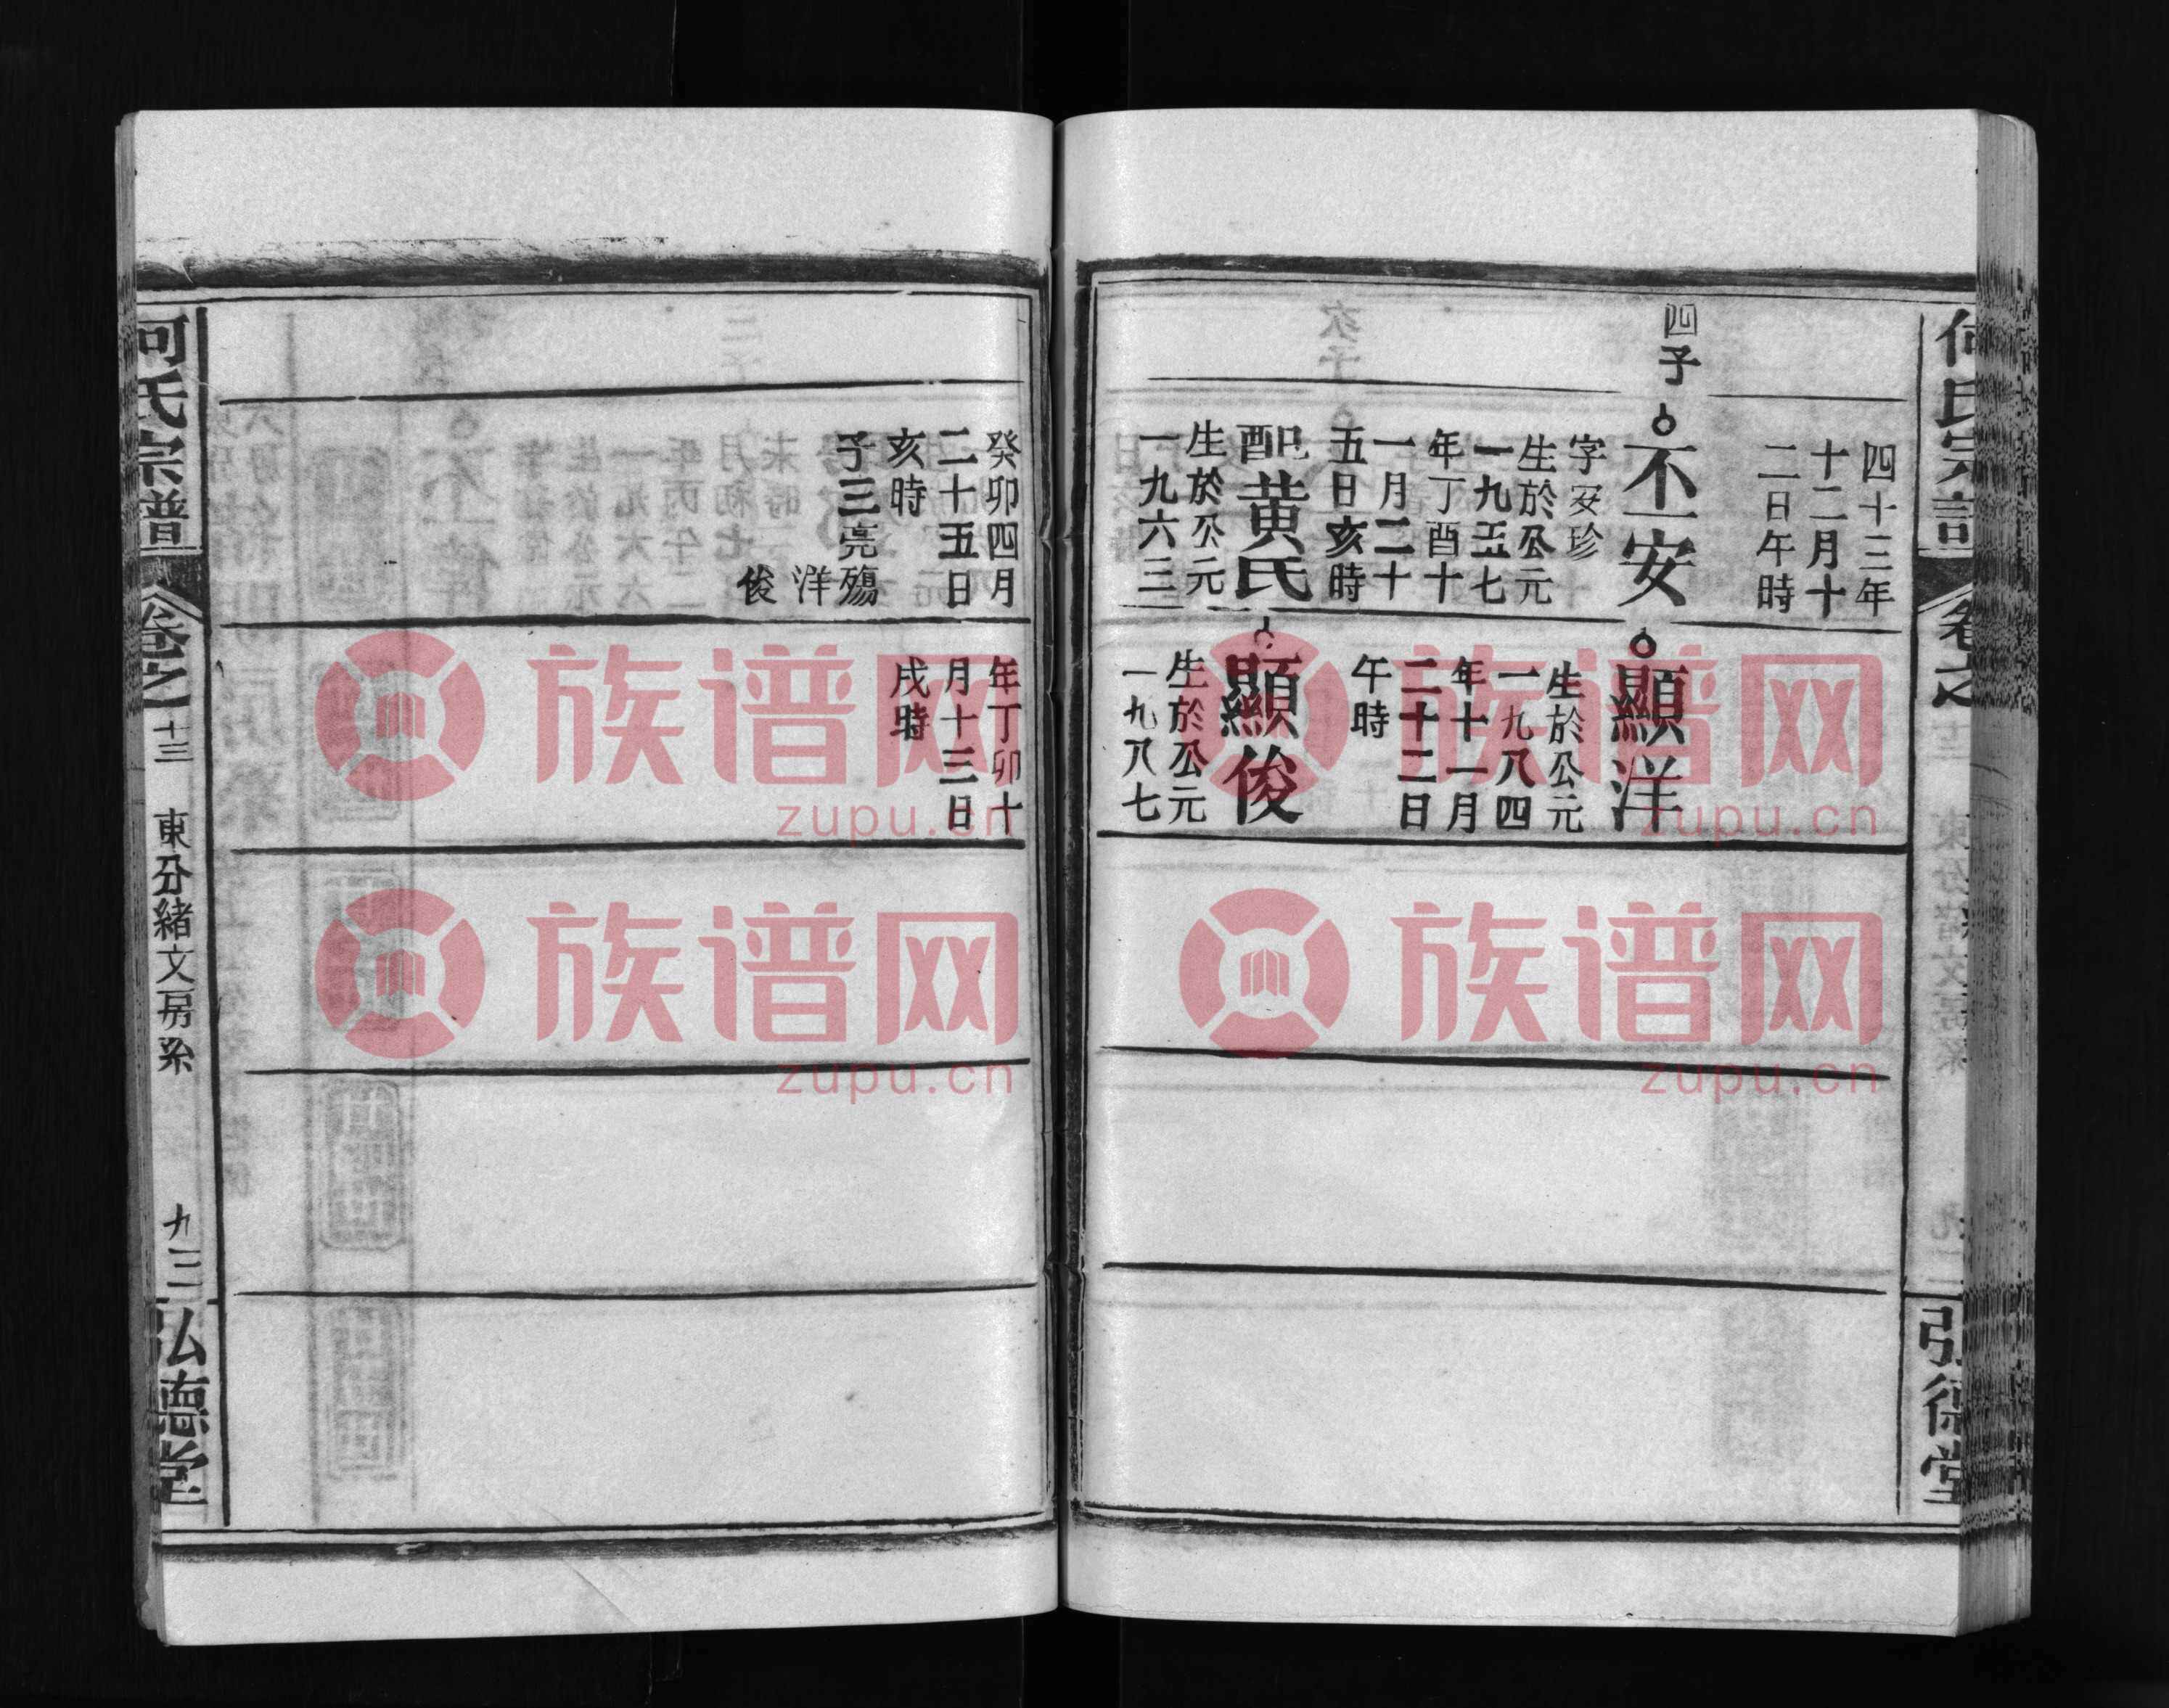 四十三年
十二月十
二日午時
四子
丕安
字安珍
生於公元
一九五七
年丁酉十
一月二十
五日亥時
配黃氏
生於公元
一九六三
顯洋
生於公元
一九八四
年十一月
二十二日
午時
顯俊
生於公元
一九八七
弘德堂
癸卯四月
二十五日
亥時
子三亮殤
洋
俊
年丁卯十
月十三日
戌時
何氏宗譜
卷之十三
東分緒文房系
九三
弘德堂
族谱网
zupu.cn
族谱网
zupu.cn
族谱网
zupu.cn
族谱网
zupu.cn